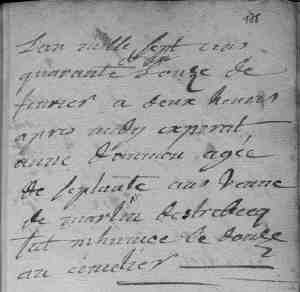 188
L'an mille sept cens
quarante et onze de
fevrier a deux heures
apres midy expirat
anne dommou agée
de septante ans venne
de martin destrebecq
fut inhumee le douze
au cimetier